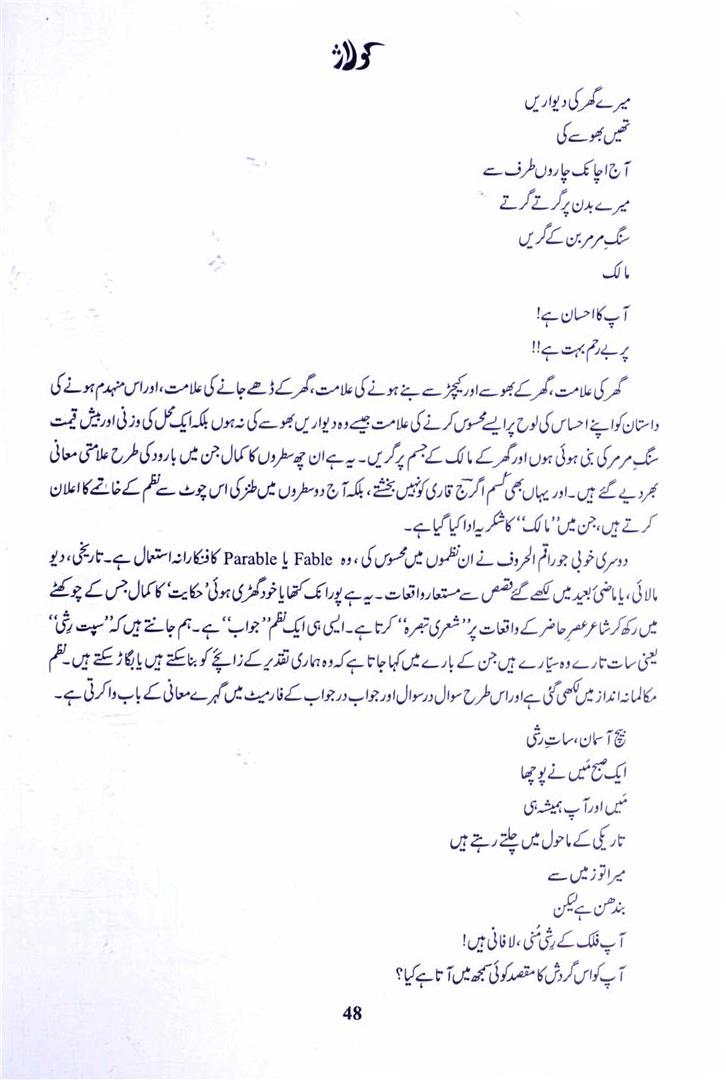 کولاژ
میرے گھر کی دیواریں
تھیں بھوسے کی
آج اچانک چاروں طرف سے
میرے بدن پر گرتے گرتے
سنگِ مرمر بن کے گریں
مالک
آپ کا احسان ہے!
پر بے رحم بہت ہے!!
گھر کی علامت، گھر کے بھوسے اور کیچڑ سے بنے ہونے کی علامت، گھر کے ڈھے جانے کی علامت، اور اس منہدم ہونے کی
داستان کو اپنے احساس کی لوح پر ایسے محسوس کرنے کی علامت جیسے وہ دیواریں بھوسے کی نہ ہوں بلکہ ایک محل کی وزنی اور بیش قیمت
سنگِ مرمر کی بنی ہوئی ہوں اور گھر کے مالک کے جسم پر گریں۔ یہ ہے ان چھ سطروں کا کمال جن میں بارود کی طرح علامتی معانی
بھر دیے گئے ہیں۔ اور یہاں بھی گسم اگرج قاری کو نہیں بخشتے، بلکہ آج دو سطروں میں طنز کی اس چوٹ سے نظم کے خاتمے کا اعلان
کرتے ہیں، جن میں ”مالک“ کا شکریہ ادا کیا گیا ہے۔
دوسری خوبی جو راقم الحروف نے ان نظموں میں محسوس کی، وہ Fable یا Parable کا فنکارانہ استعمال ہے۔ تاریخی، دیو
مالائی، یا ماضیٔ بعید میں لکھے گئے قصص سے مستعار واقعات۔ یہ ہے پورانک کتھا یا خود گھڑی ہوئی ’حکایت‘ کا کمال جس کے چوکھٹے
میں رکھ کر شاعر عصرِ حاضر کے واقعات پر ”شعری تبصرہ“ کرتا ہے۔ ایسی ہی ایک نظم ”جواب“ ہے۔ ہم جانتے ہیں کہ ”سپت رِشی“
یعنی سات تارے وہ سیّارے ہیں جن کے بارے میں کہا جاتا ہے کہ وہ ہماری تقدیر کے زائچے کو بنا سکتے ہیں یا بگاڑ سکتے ہیں۔ نظم
مکالمانہ انداز میں لکھی گئی ہے اور اس طرح سوال در سوال اور جواب در جواب کے فارمیٹ میں گہرے معانی کے باب وا کرتی ہے۔
بیچ آسمان، سات رِشی
ایک صبح مَیں نے پوچھا
مَیں اور آپ ہمیشہ ہی
تاریکی کے ماحول میں چلتے رہتے ہیں
میرا تو زمیں سے
بندھن ہے لیکن
آپ فلک کے رِشی مُنی، لافانی ہیں!
آپ کو اس گردش کا مقصد کوئی سمجھ میں آتا ہے کیا؟
48